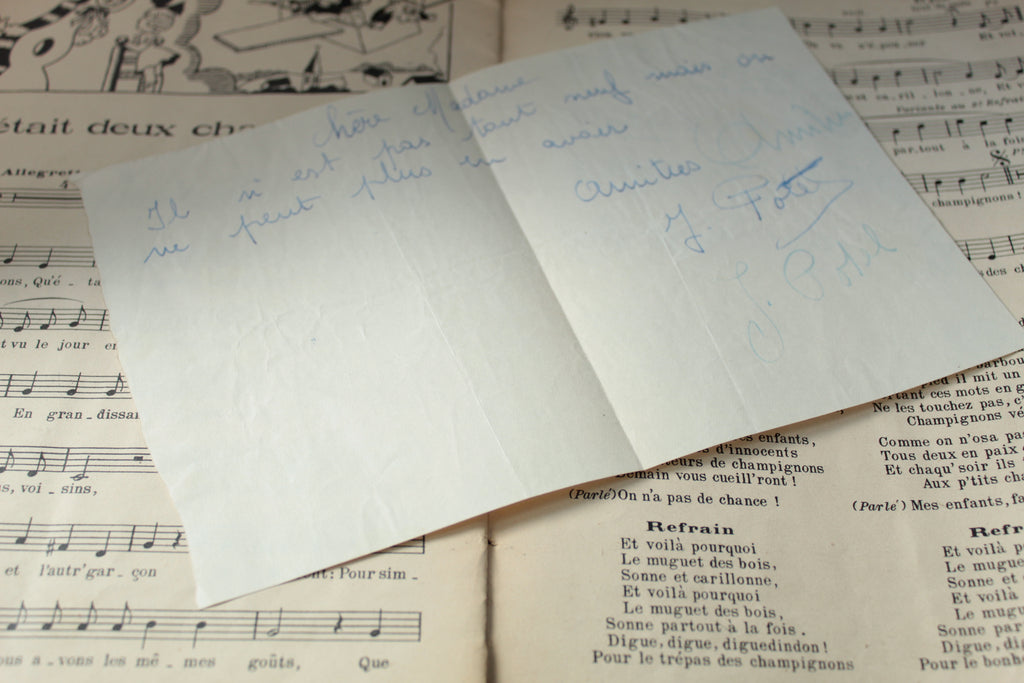 était deux
Allegrett
ons, Qu'é - ta
t vu le jour en
En gran - dissan
s, voi - sins,
et l'autr' gar - çon
: Pour sim -
ous a - vons les mê - mes goûts, Que
Chère Madame
Il n'est pas tout neuf mais on
ne peut plus en avoir
Amitiés
Amitiés
J. Potel
J. Potel
Et vot
Et
Variante au 2e Refrain
par - tout à la fois
champignons !
des ch
s enfants,
s d'innocents
teurs de champignons
Demain vous cueill'ront !
(Parlé) On n'a pas de chance !
Refrain
Et voilà pourquoi
Le muguet des bois,
Sonne et carillonne,
Et voilà pourquoi
Le muguet des bois,
Sonne partout à la fois.
Digue, digue, diguedindon !
Pour le trépas des champignons
barbou
pied il mit un
rtant ces mots en g
Ne les touchez pas, c'
Champignons vé
Comme on n'osa pa
Tous deux en paix
Et chaqu' soir ils
Aux p'tits cha
(Parlé) Mes enfants, fa
Refr
Et voilà p
Le mugue
Sonne et
Et voilà
Le mugu
Sonne par
Digue, di
Pour le bonh